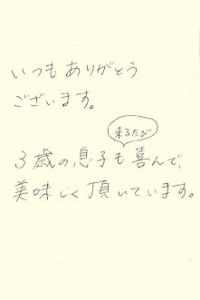 いつもありがとう
ございます。
来るたび
3歳の息子も喜んで、
美味しく頂いています。